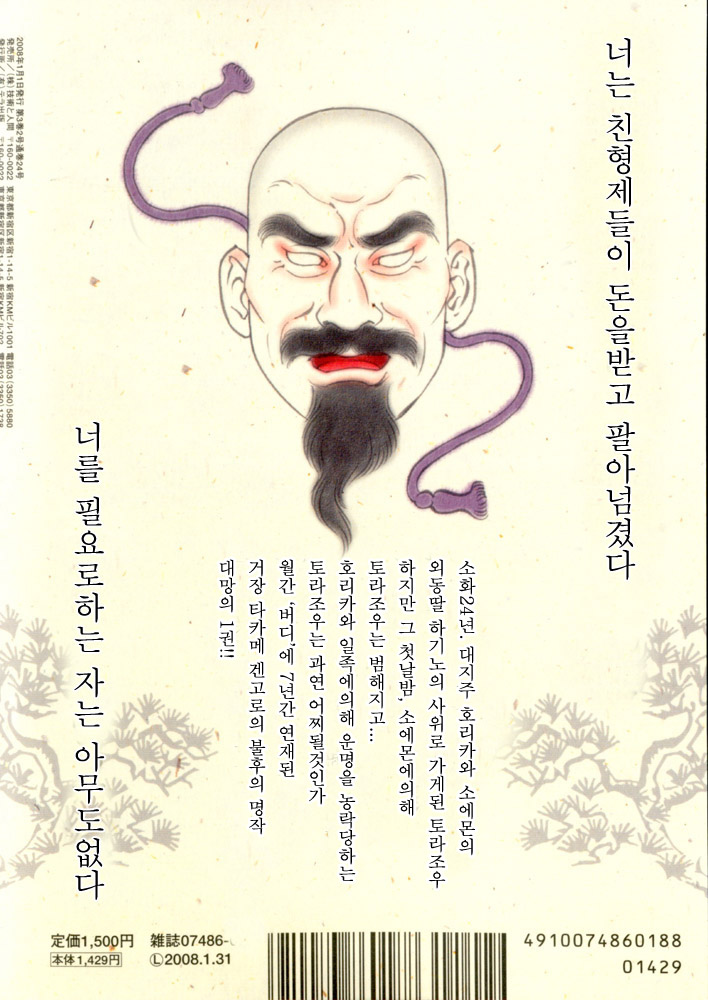 너는 친형제들이 돈을받고 팔아넘겼다
소화24년. 대지주 호리카와 소에몬의
외동딸 하기노의 사위로 가게된 토라조우
하지만 그 첫날밤, 소에몬에의해
토라조우는 범해지고...
호리카와 일족에의해 운명을 농락당하는
토라조우는 과연 어찌될것인가
월간 '버디'에 7년간 연재된
거장 타카메 겐고로의 불후의 명작
대망의 1권!!
너를 필요로하는 자는 아무도없다
2008年1月1日発行 第3巻2号通巻24号
発売所/(株)技術と人間 〒160-0022 東京都新宿区新宿1-14-5 新宿KMビル1001 電話03(3350)5880
発行所/(有)テラ出版 〒160-0022 東京都新宿区新宿1-14-5 新宿KMビル702
定価1,500円 雑誌07486-
本体1,429円 Ⓛ2008.1.31
4910074860188
01429